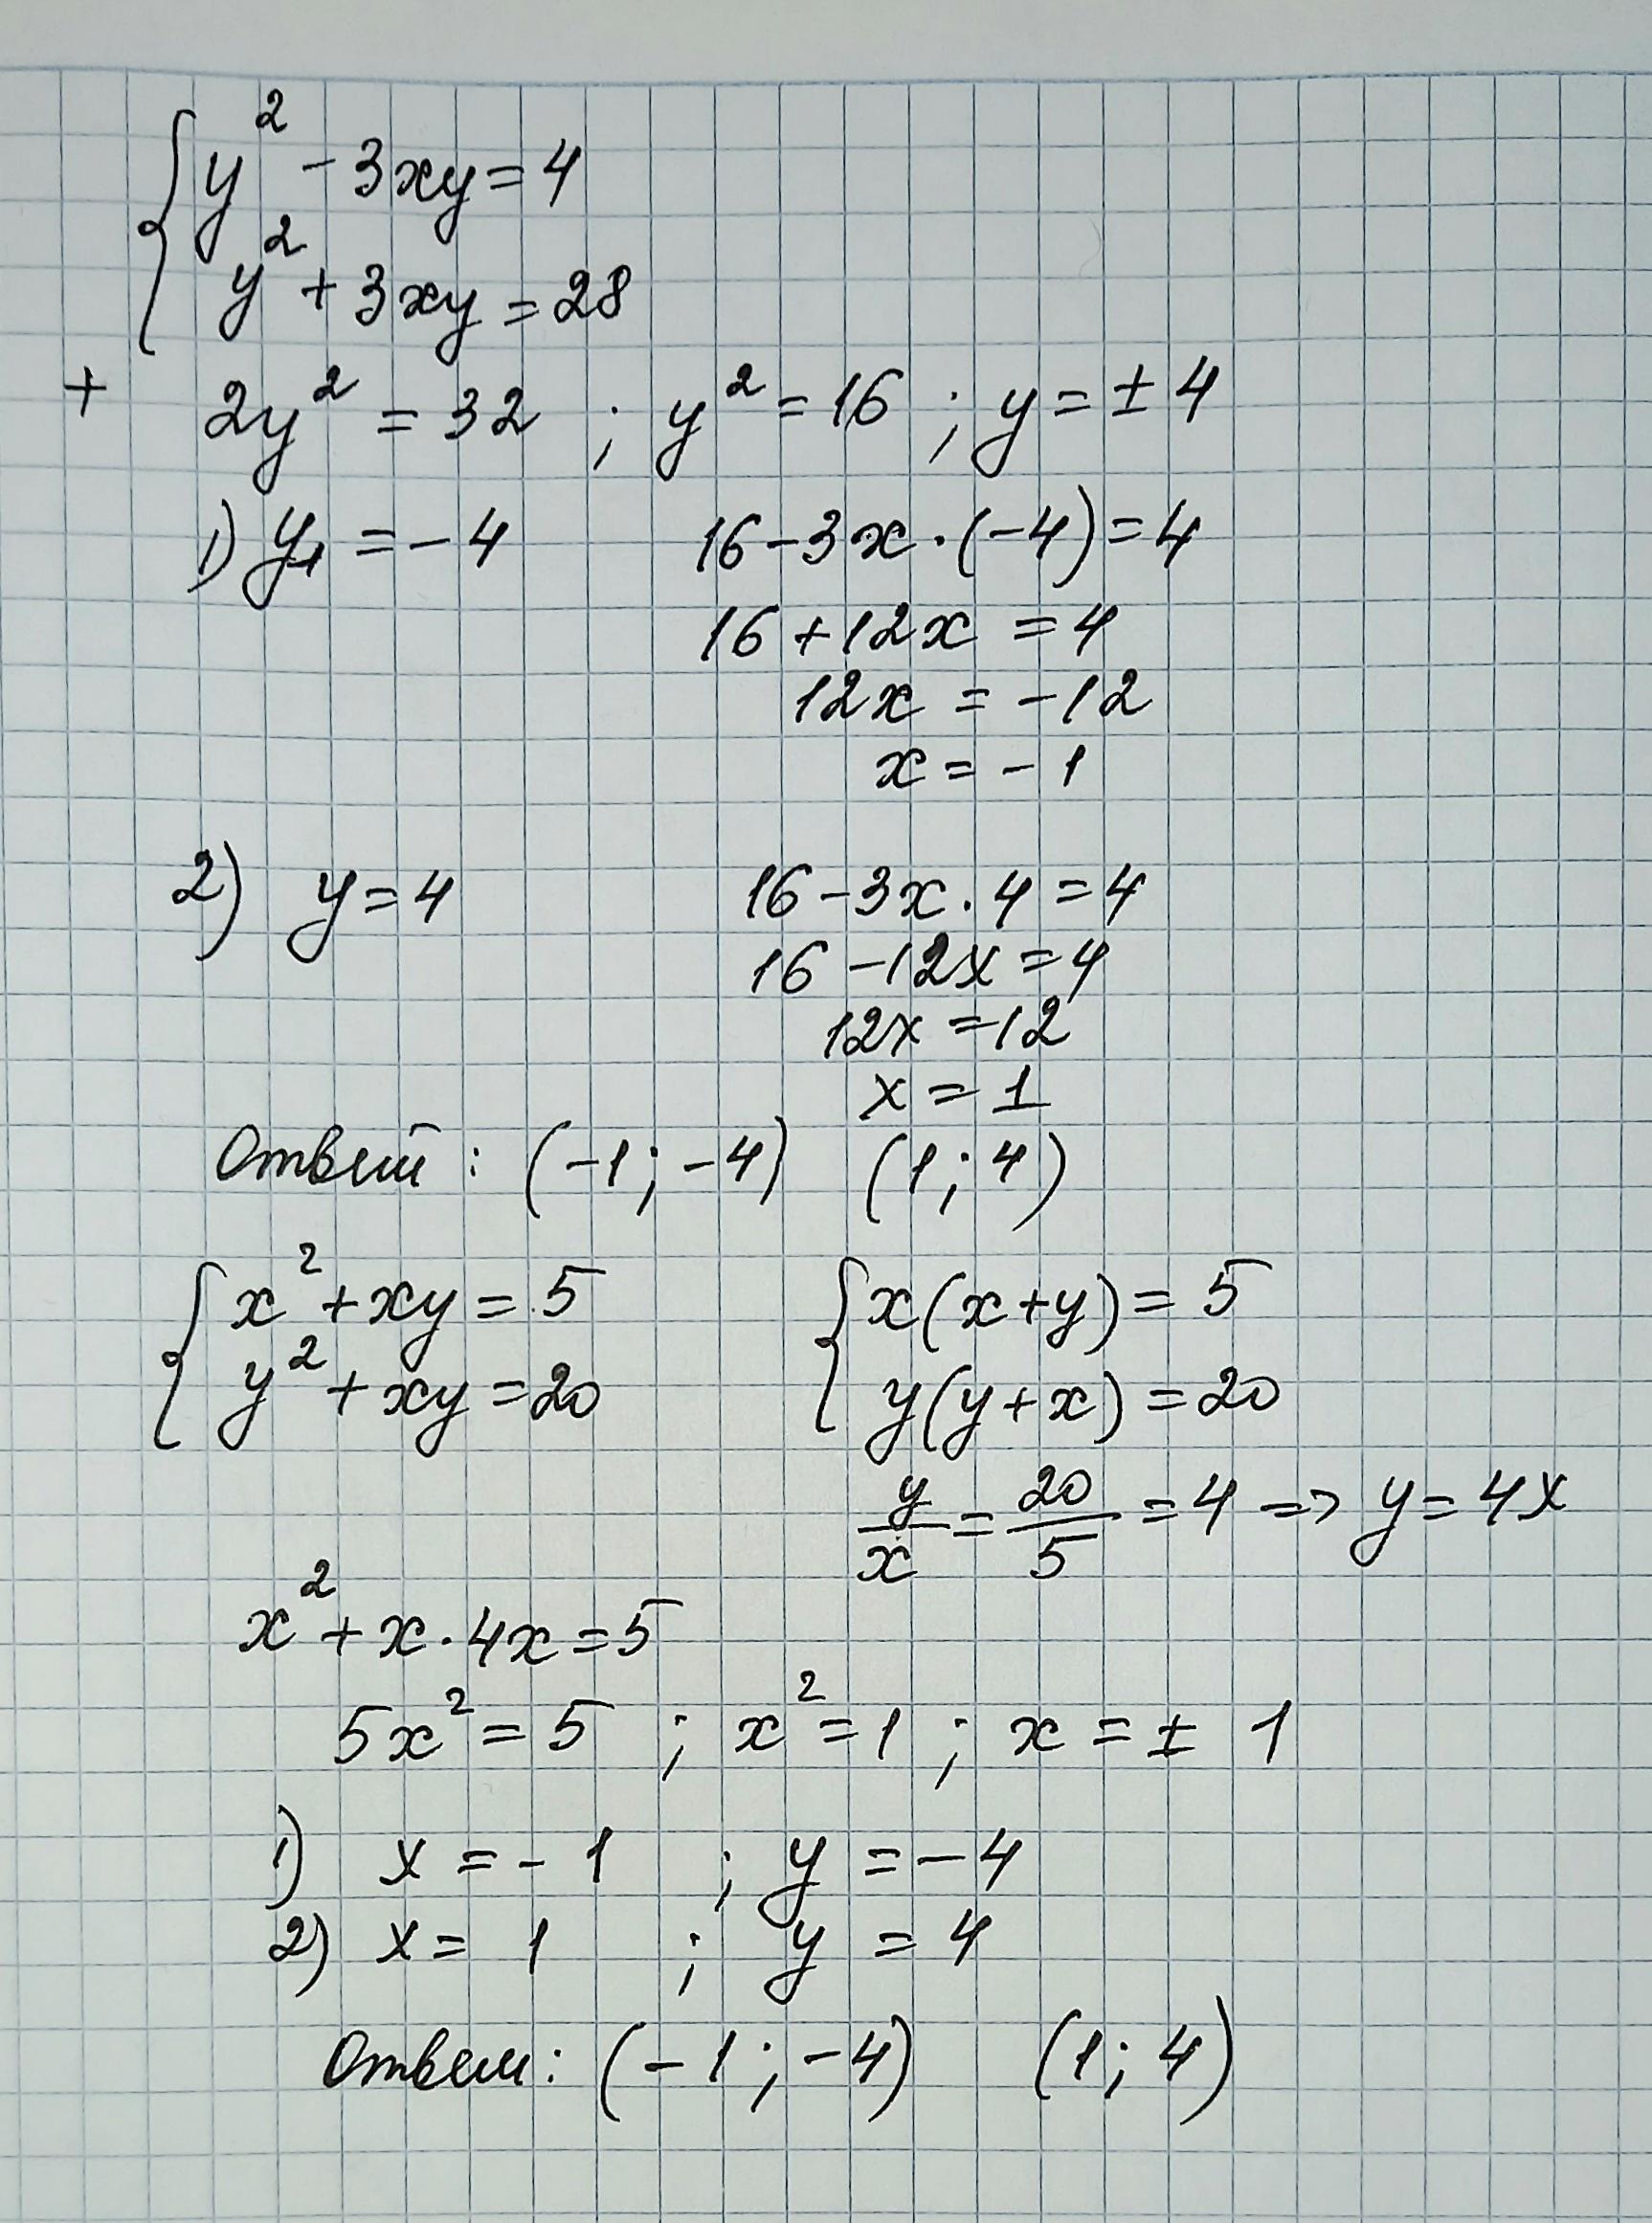 y² - 3xy = 4
y² + 3xy = 28
+ 2y² = 32 ; y² = 16 ; y = ± 4
1) y₁ = - 4 16 - 3x · (-4) = 4
16 + 12x = 4
12x = - 12
x = - 1
2) y = 4 16 - 3x · 4 = 4
16 - 12x = 4
12x = 12
x = 1
Ответ : (-1 ; -4) (1 ; 4)
x² + xy = 5 x(x+y) = 5
y² + xy = 20 y(y+x) = 20
y/x = 20/5 = 4 => y = 4x
x² + x · 4x = 5
5x² = 5 ; x² = 1 ; x = ± 1
1) x = - 1 ; y = - 4
2) x = 1 ; y = 4
Ответ : (-1 ; -4) (1 ; 4)